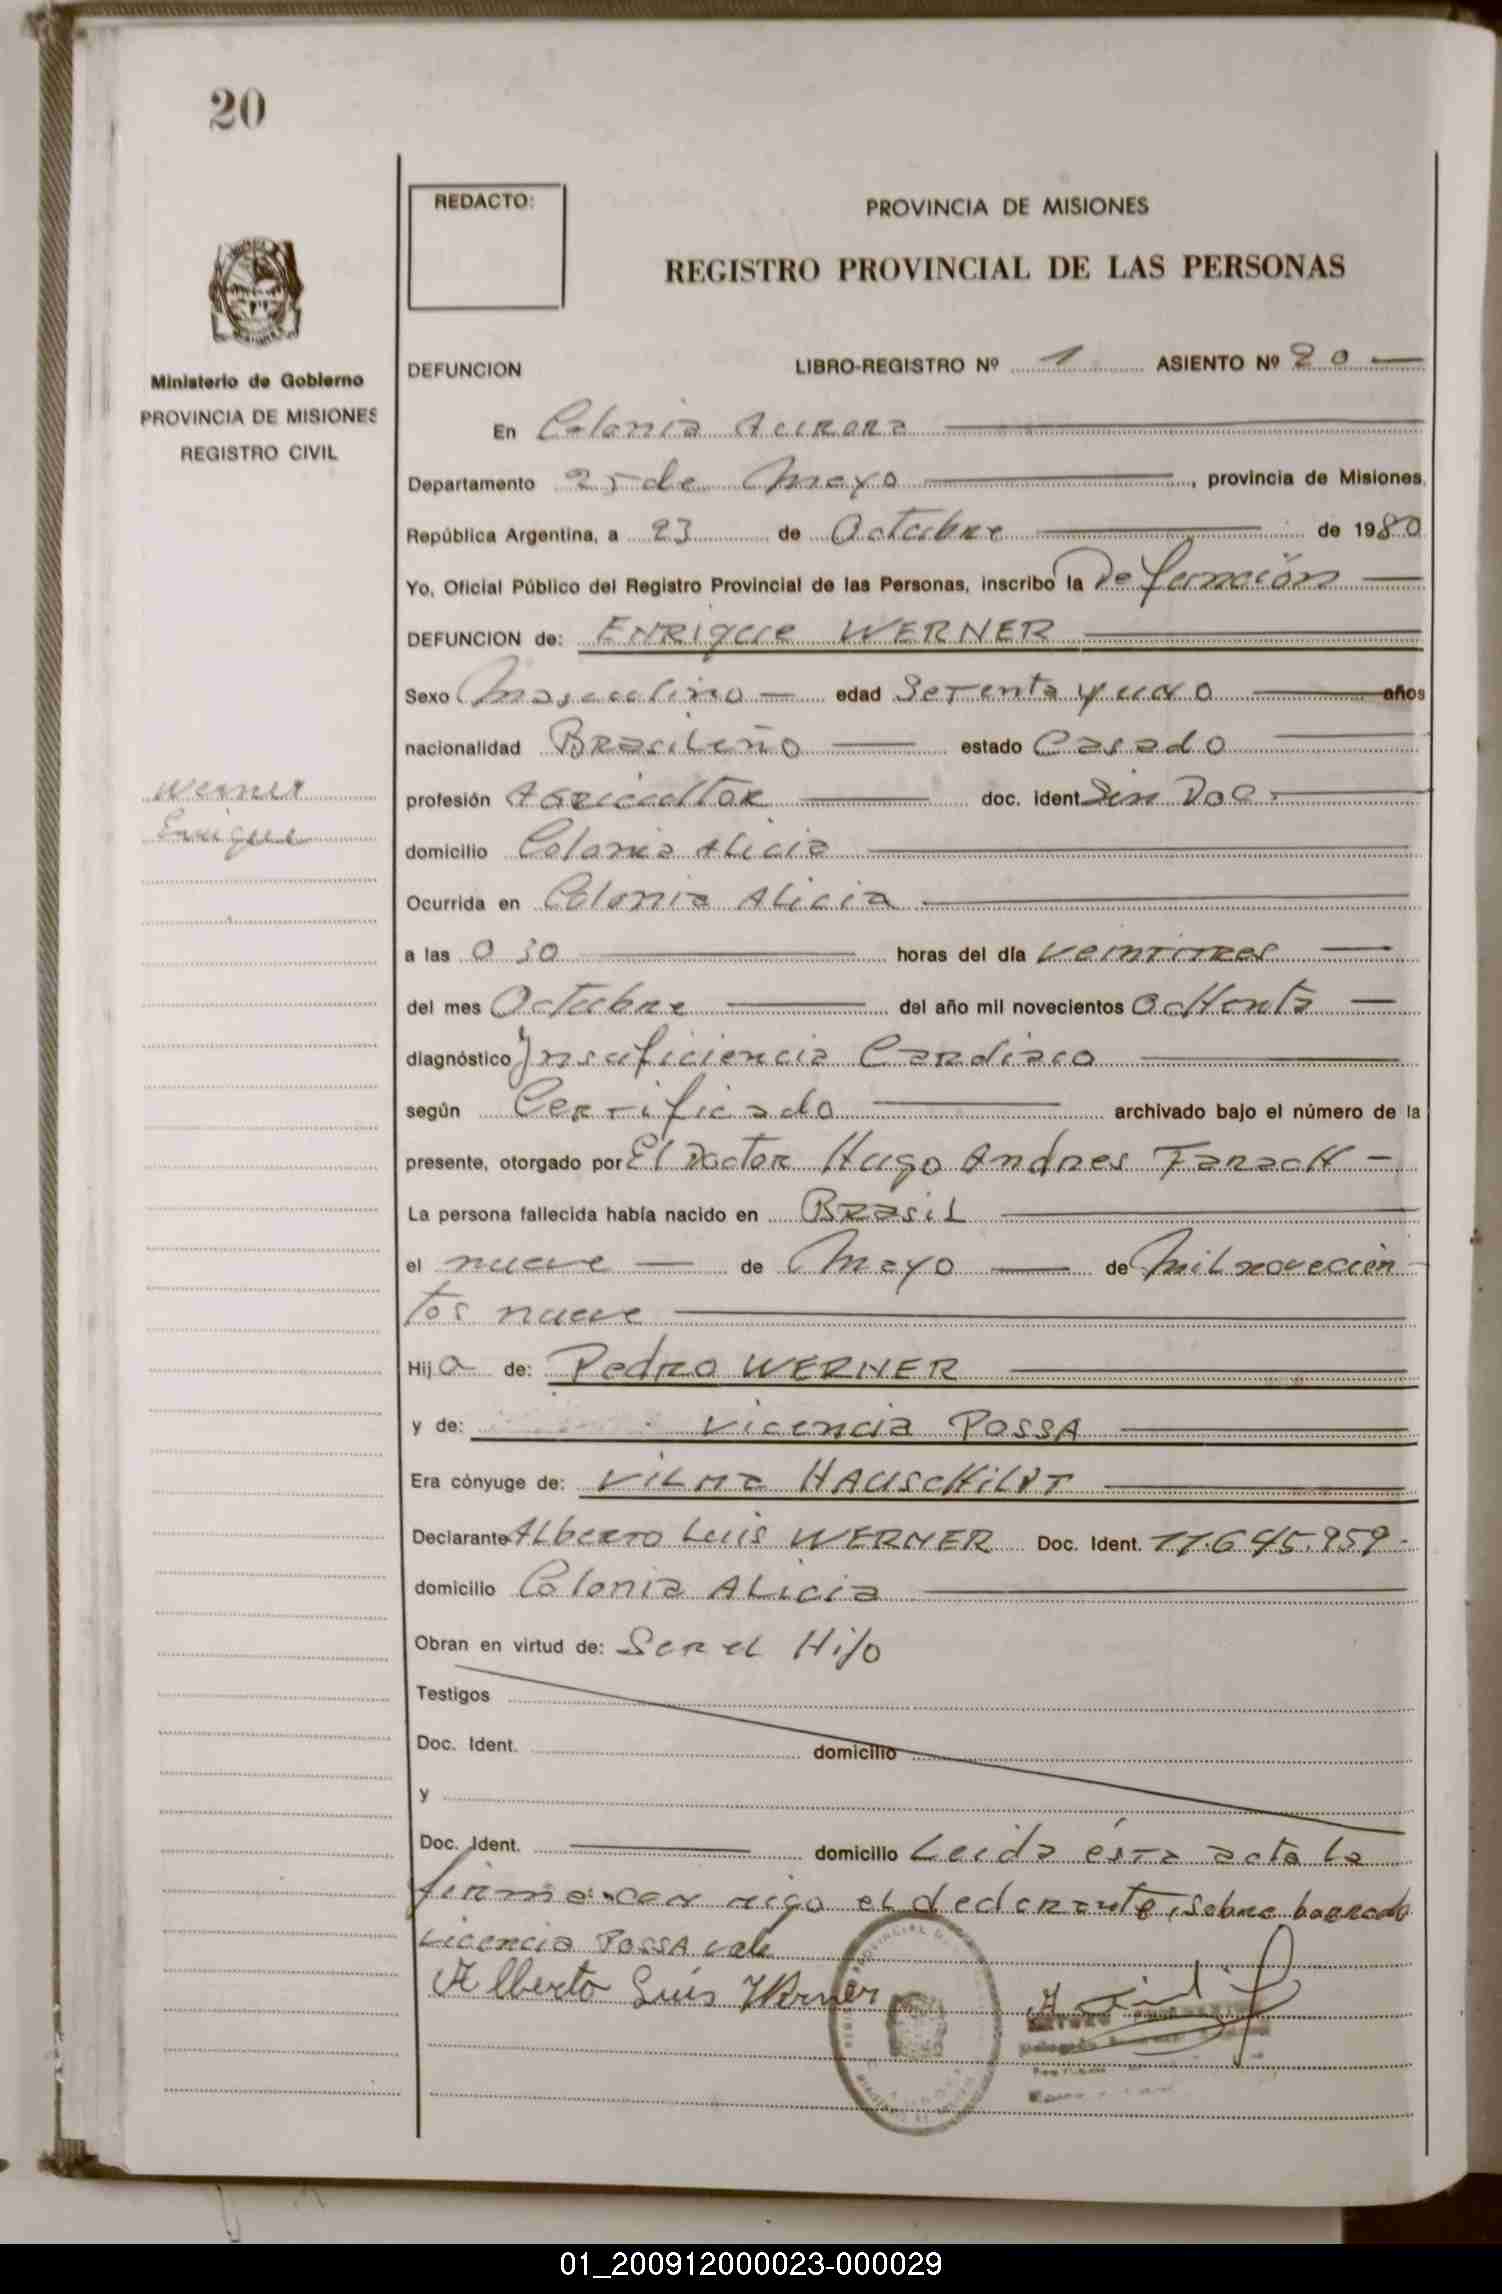 20
REDACTO:
PROVINCIA DE MISIONES
REGISTRO PROVINCIAL DE LAS PERSONAS
Ministerio de Gobierno
PROVINCIA DE MISIONES
REGISTRO CIVIL
DEFUNCION LIBRO-REGISTRO Nº 1 ASIENTO Nº 20
En Colonia Aurora
Departamento 25 de Mayo, provincia de Misiones,
República Argentina, a 23 de Octubre de 1980
Yo, Oficial Público del Registro Provincial de las Personas, inscribo la Defunción
DEFUNCION de: ENRIque WERNER
Sexo Masculino edad Setenta y uno años
nacionalidad Brasileño estado Casado
Werner
Enrique
profesión Agricultor doc. ident. Sin Doc.
domicilio Colonia Alicia
Ocurrida en Colonia Alicia
a las 0 30 horas del día veintitres
del mes Octubre del año mil novecientos ochenta
diagnóstico Insuficiencia Cardiaco
según Certificado archivado bajo el número de la
presente, otorgado por El Doctor Hugo Andres
La persona fallecida había nacido en Brasil
el nueve de Mayo de Mil novecien-
tos nueve
Hijo de: Pedro WERNER
y de: Vicencia POSSA
Era cónyuge de: VILMA HAUSCHILDT
Declarante Alberto Luis WERNER Doc. Ident. 11.645.959-
domicilio Colonia Alicia
Obran en virtud de: Ser el Hijo
Testigos
Doc. Ident. domicilio
y
Doc. Ident. domicilio Leida ésta acta la
firma con migo el declarante, sobre borrado
Vicencia POSSA vale
Alberto Luis Werner
01_200912000023-000029